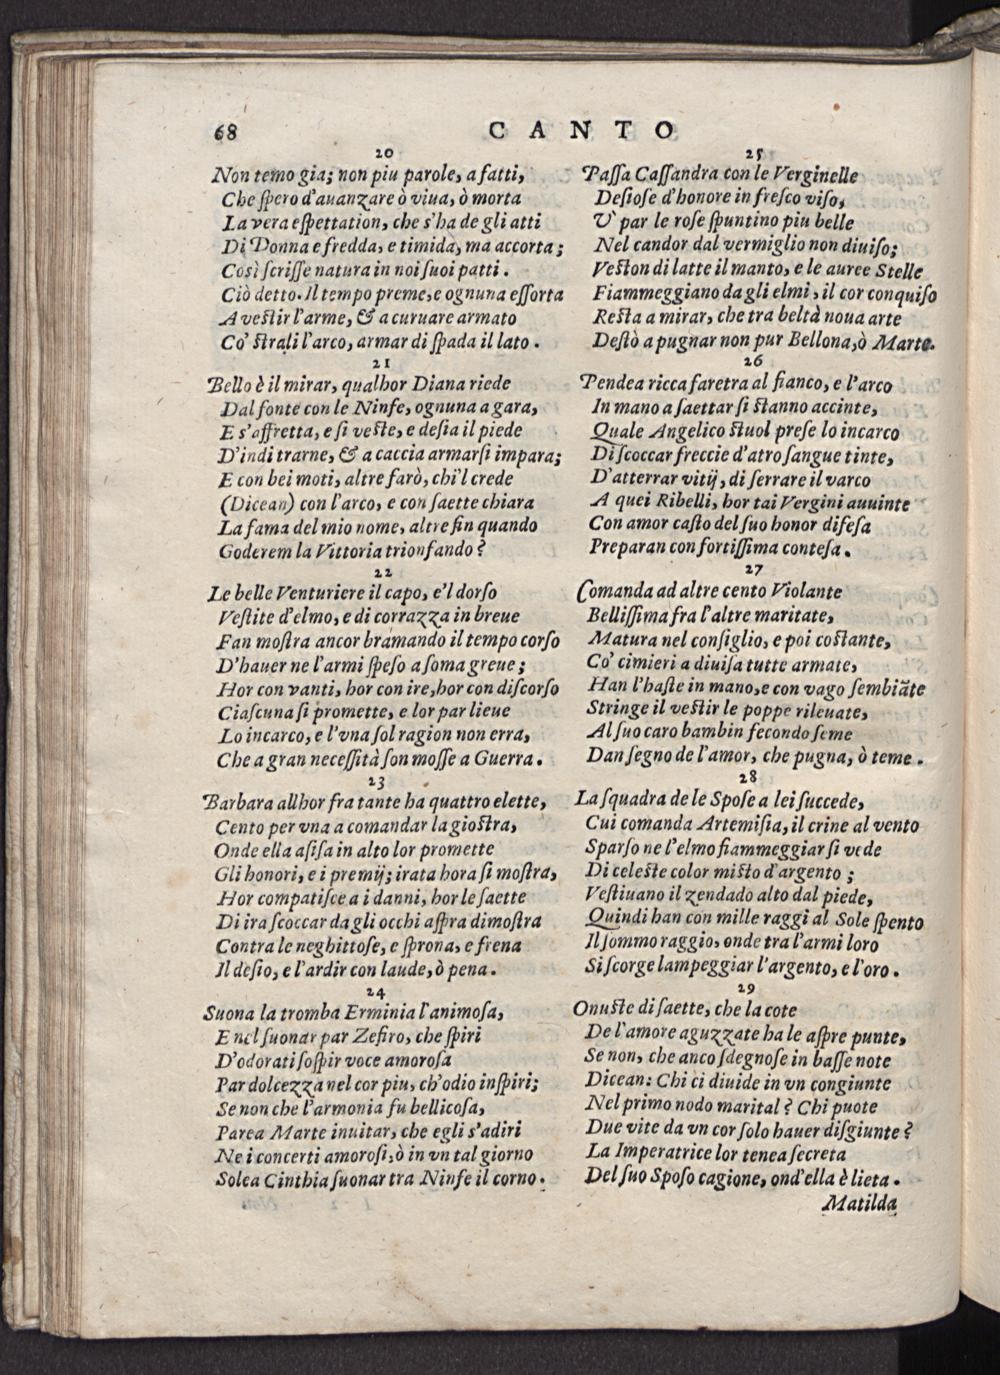 68
CANTO
20
Non temo gia; non piu parole, a fatti,
Che ſpero d'auanzare ò viua, ò morta
La vera eſpettation, che s'ha de gli atti
Di Donna e fredda, e timida, ma accorta;
Così ſcriſſe natura in noi ſuoi patti.
Ciò detto. Il tempo preme, e ognuna eſſorta
A veſtir l'arme, & a curuare armato
Co' ſtrali l'arco, armar di ſpada il lato.
21
Bello è il mirar, qualhor Diana riede
Dal fonte con le Ninfe, ognuna a gara,
E s'affretta, e ſi veſte, e deſia il piede
D'indi trarne, & a caccia armarſi impara;
E con bei moti, altre farò, chi'l crede
(Dicean) con l'arco, e con ſaette chiara
La fama del mio nome, altre fin quando
Goderem la Vittoria trionfando?
22
Le belle Venturiere il capo, e'l dorſo
Veſtite d'elmo, e di corrazza in breue
Fan moſtra ancor bramando il tempo corſo
D'hauer ne l'armi ſpeſo a ſoma greue;
Hor con vanti, hor con ire, hor con diſcorſo
Ciaſcuna ſi promette, e lor par lieue
Lo incarco, e l'vna ſol ragion non erra,
Che a gran neceſſità ſon moſſe a Guerra.
23
Barbara allhor fra tante ha quattro elette,
Cento per vna a comandar la gioſtra,
Onde ella aſiſa in alto lor promette
Gli honori, e i premij; irata hora ſi moſtra,
Hor compatiſce a i danni, hor le ſaette
Di ira ſcoccar da gli occhi aſpra dimoſtra
Contra le neghittoſe, e ſprona, e frena
Il deſio, e l'ardir con laude, ò pena.
24
Suona la tromba Erminia l'animoſa,
E nel ſuonar par Zefiro, che ſpiri
D'odorati ſoſpir voce amoroſa
Par dolcezza nel cor piu, ch'odio inſpiri;
Se non che l'armonia fu bellicoſa,
Parea Marte inuitar, che egli s'adiri
Ne i concerti amoroſi, ò in vn tal giorno
Solea Cinthia ſuonar tra Ninfe il corno.
25
Paſſa Caſſandra con le Verginelle
Deſioſe d'honore in freſco viſo,
V' par le roſe ſpuntino piu belle
Nel candor dal vermiglio non diuiſo;
Veſton di latte il manto, e le auree Stelle
Fiammeggiano da gli elmi, il cor conquiſo
Reſta a mirar, che tra beltà noua arte
Deſtò a pugnar non pur Bellona, ò Marte.
26
Pendea ricca faretra al fianco, e l'arco
In mano a ſaettar ſi ſtanno accinte,
Quale Angelico ſtuol preſe lo incarco
Di ſcoccar freccie d'atro ſangue tinte,
D'atterrar vitij, di ſerrare il varco
A quei Ribelli, hor tai Vergini auuinte
Con amor caſto del ſuo honor difeſa
Preparan con fortiſſima conteſa.
27
Comanda ad altre cento Violante
Belliſſima fra l'altre maritate,
Matura nel conſiglio, e poi coſtante,
Co' cimieri a diuiſa tutte armate,
Han l'haſte in mano, e con vago ſembiãte
Stringe il veſtir le poppe rileuate,
Al ſuo caro bambin fecondo ſeme
Dan ſegno de l'amor, che pugna, ò teme.
28
La ſquadra de le Spoſe a lei ſuccede,
Cui comanda Artemiſia, il crine al vento
Sparſo ne l'elmo fiammeggiar ſi vede
Di celeſte color miſto d'argento;
Veſtiuano il zendado alto dal piede,
Quindi han con mille raggi al Sole ſpento
Il ſommo raggio, onde tra l'armi loro
Si ſcorge lampeggiar l'argento, e l'oro.
29
Onuſte di ſaette, che la cote
De l'amore aguzzate ha le aſpre punte,
Se non, che anco ſdegnoſe in baſſe note
Dicean: Chi ci diuide in vn congiunte
Nel primo nodo marital? Chi puote
Due vite da vn cor ſolo hauer diſgiunte?
La Imperatrice lor tenea ſecreta
Del ſuo Spoſo cagione, ond'ella è lieta.
Matilda